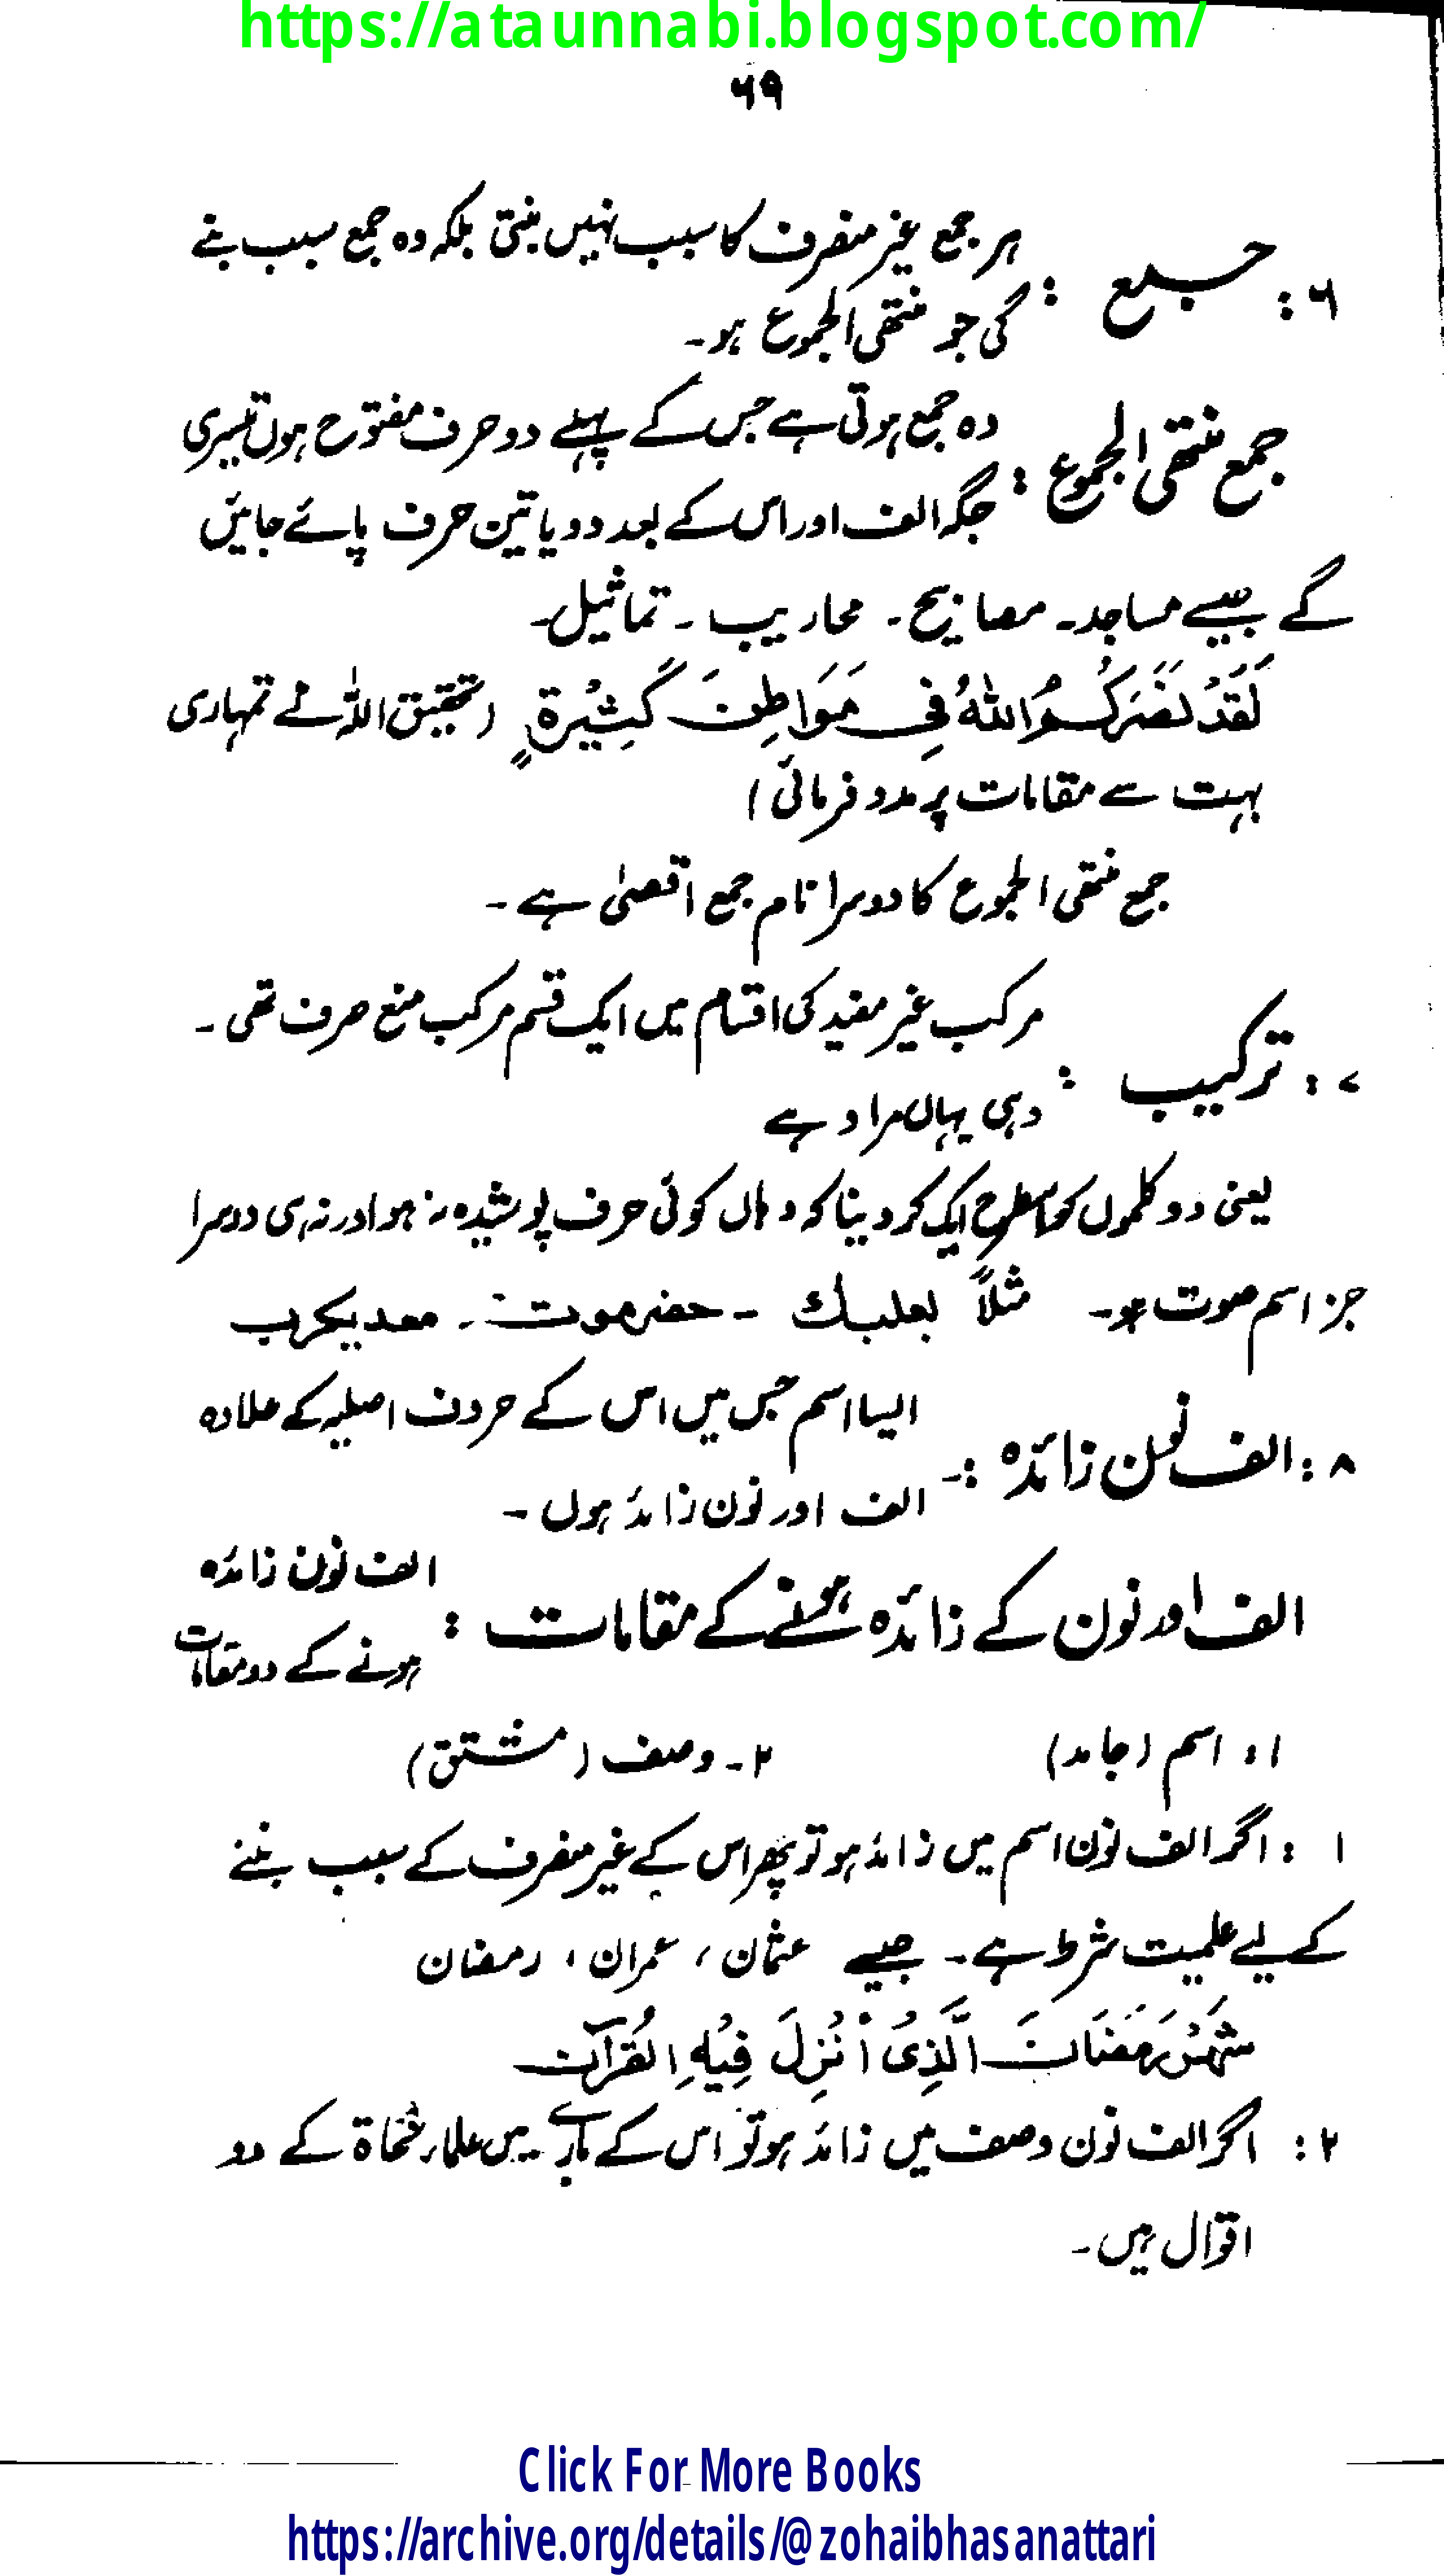 https://ataunnabi.blogspot.com/
۶۹
۶: جمع : ہر جمع غیر منصرف کا سبب نہیں بنتی بلکہ وہ جمع سبب بنے
گی جو منتھی الجموع ہو۔
جمع منتھی الجموع : وہ جمع ہوتی ہے جس کے پہلے دو حرف مفتوح ہوں تیسری
جگہ الف اور اس کے بعد دو یا تین حرف پائے جائیں
گے جیسے مساجد۔ مصابیح۔ محاریب۔ تماثیل۔
لَقَدْ نَصَرَكُمُ اللهُ فِي مَوَاطِنَ كَثِيْرَةٍ (تحقیق اللہ نے تمہاری
بہت سے مقامات پر مدد فرمائی)
جمع منتھی الجموع کا دوسرا نام جمع اقصیٰ ہے۔
۷: ترکیب : مرکب غیر مفید کی اقسام میں ایک قسم مرکب منع صرف تھی۔
وہی یہاں مراد ہے
یعنی دو کلموں کو اسطرح ایک کر دینا کہ وہاں کوئی حرف پوشیدہ نہ ہو اور نہ ہی دوسرا
جز اسم صوت ہو۔ مثلاً بعلبك ۔ حضرموت ۔ معدیکرب
۸: الف نون زائدہ :۔ ایسا اسم جس میں اس کے حروف اصلیہ کے علاوہ
الف اور نون زائد ہوں ۔
الف اور نون کے زائدہ ہونے کے مقامات : الف نون زائدہ
ہونے کے دو مقامات
۱: اسم (جامد) ۲۔ وصف (مشتق)
۱ : اگر الف نون اسم میں زائد ہو تو پھر اس کے غیر منصرف کے سبب بننے
کے لیے علمیت شرط ہے۔ جیسے عثمان، عمران، رمضان
شَهْرُ رَمَضَانَ الَّذِىْ أُنْزِلَ فِيْهِ الْقُرْآن
۲: اگر الف نون وصف میں زائد ہو تو اس کے بارے میں علماء نحاۃ کے دو
اقوال ہیں۔
Click For More Books
https://archive.org/details/@zohaibhasanattari